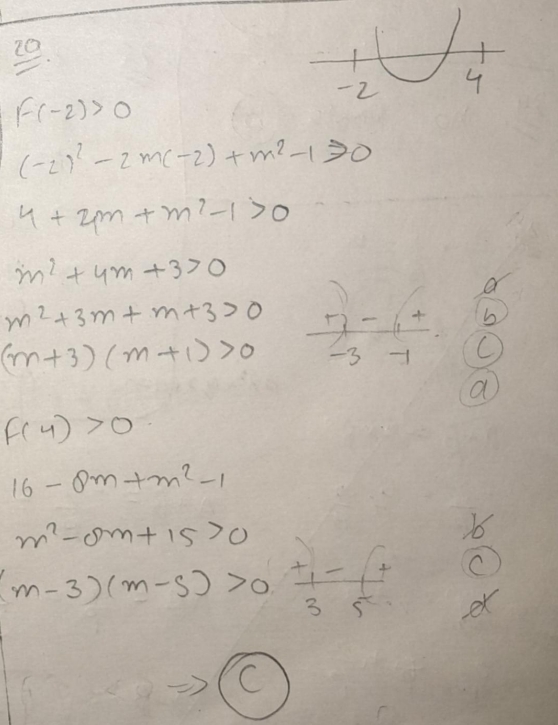 20
-2 4
F(-2)>0
(-2)² - 2m(-2) + m² - 1 > 0
4 + 4m + m² - 1 > 0
m² + 4m + 3 > 0
m² + 3m + m + 3 > 0
(m+3) (m+1) > 0
+ - +
-3 -1
a
b
c
d
F(4) > 0
16 - 8m + m² - 1
m² - 8m + 15 > 0
(m-3)(m-5) > 0
+ - +
3 5
b
c
d
⇒ C